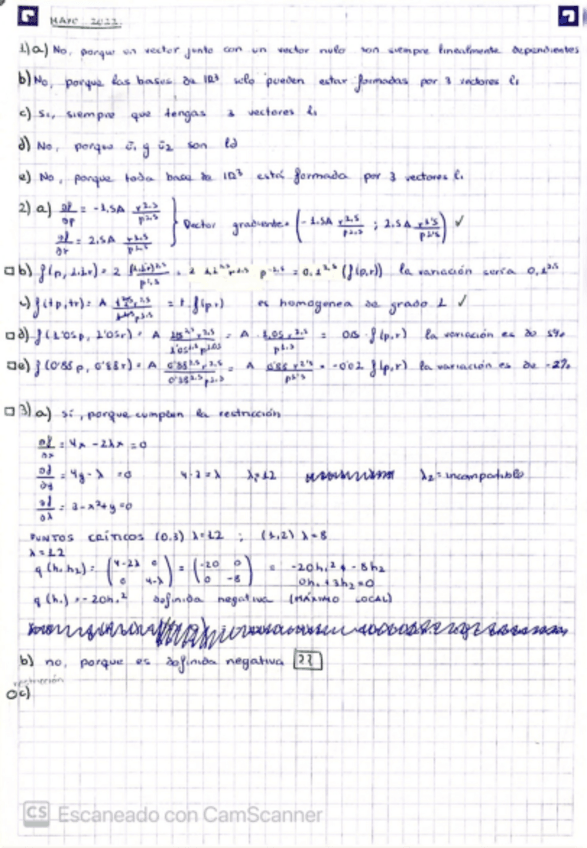 MAYO 2022
1) a) No, porque un vector junto con un vector nulo son siempre linealmente dependientes
b) No, porque las bases de IR³ solo pueden estar formadas por 3 vectores li
c) Si, siempre que tengas 3 vectores li
d) No, porque ū₁ y ū₂ son ld
e) No, porque toda base de IR³ está formada por 3 vectores li
2) a) ∂f/∂p = -1.5A r^2.5/p^2.5
∂f/∂r = 2.5A r^1.5/p^1.5 } Vector gradiente= (-1.5A r^2.5/p^2.5 ; 2.5A r^1.5/p^1.5) ✓
b) f(p, 1.1r) = la variación sería 0,1^2.5
c) f(tp,tr) = A = t. f(p,r) es homogenea de grado 1 ✓
d) f(1'05p, 1'05r) = A = A = f(p,r) la variación es de 5%
e) f(0'98p, 0'98r) = A = A = -0'02 f(p,r) la variación es de -2%
3) a) sí, porque cumplen la restricción
∂f/∂x = 4x - 2λx = 0
∂f/∂y = 4y - λ = 0 4·3 = λ λ₁=12 λ₂ = incompatible
∂f/∂λ = 3 - x² + y = 0
PUNTOS CRÍTICOS (0,3) λ=12 ; (1,2) λ=8
λ = 12
q(h₁ h₂) = (4-2λ 0 / 0 4-λ) = (-20 0 / 0 -8) = -20h₁² + -8h₂
0h₁ + 3h₂ = 0
q(h₁) = -20h₁² definida negativa (MÁXIMO LOCAL)
b) no, porque es definida negativa ??
restricción
c)
CS Escaneado con CamScanner